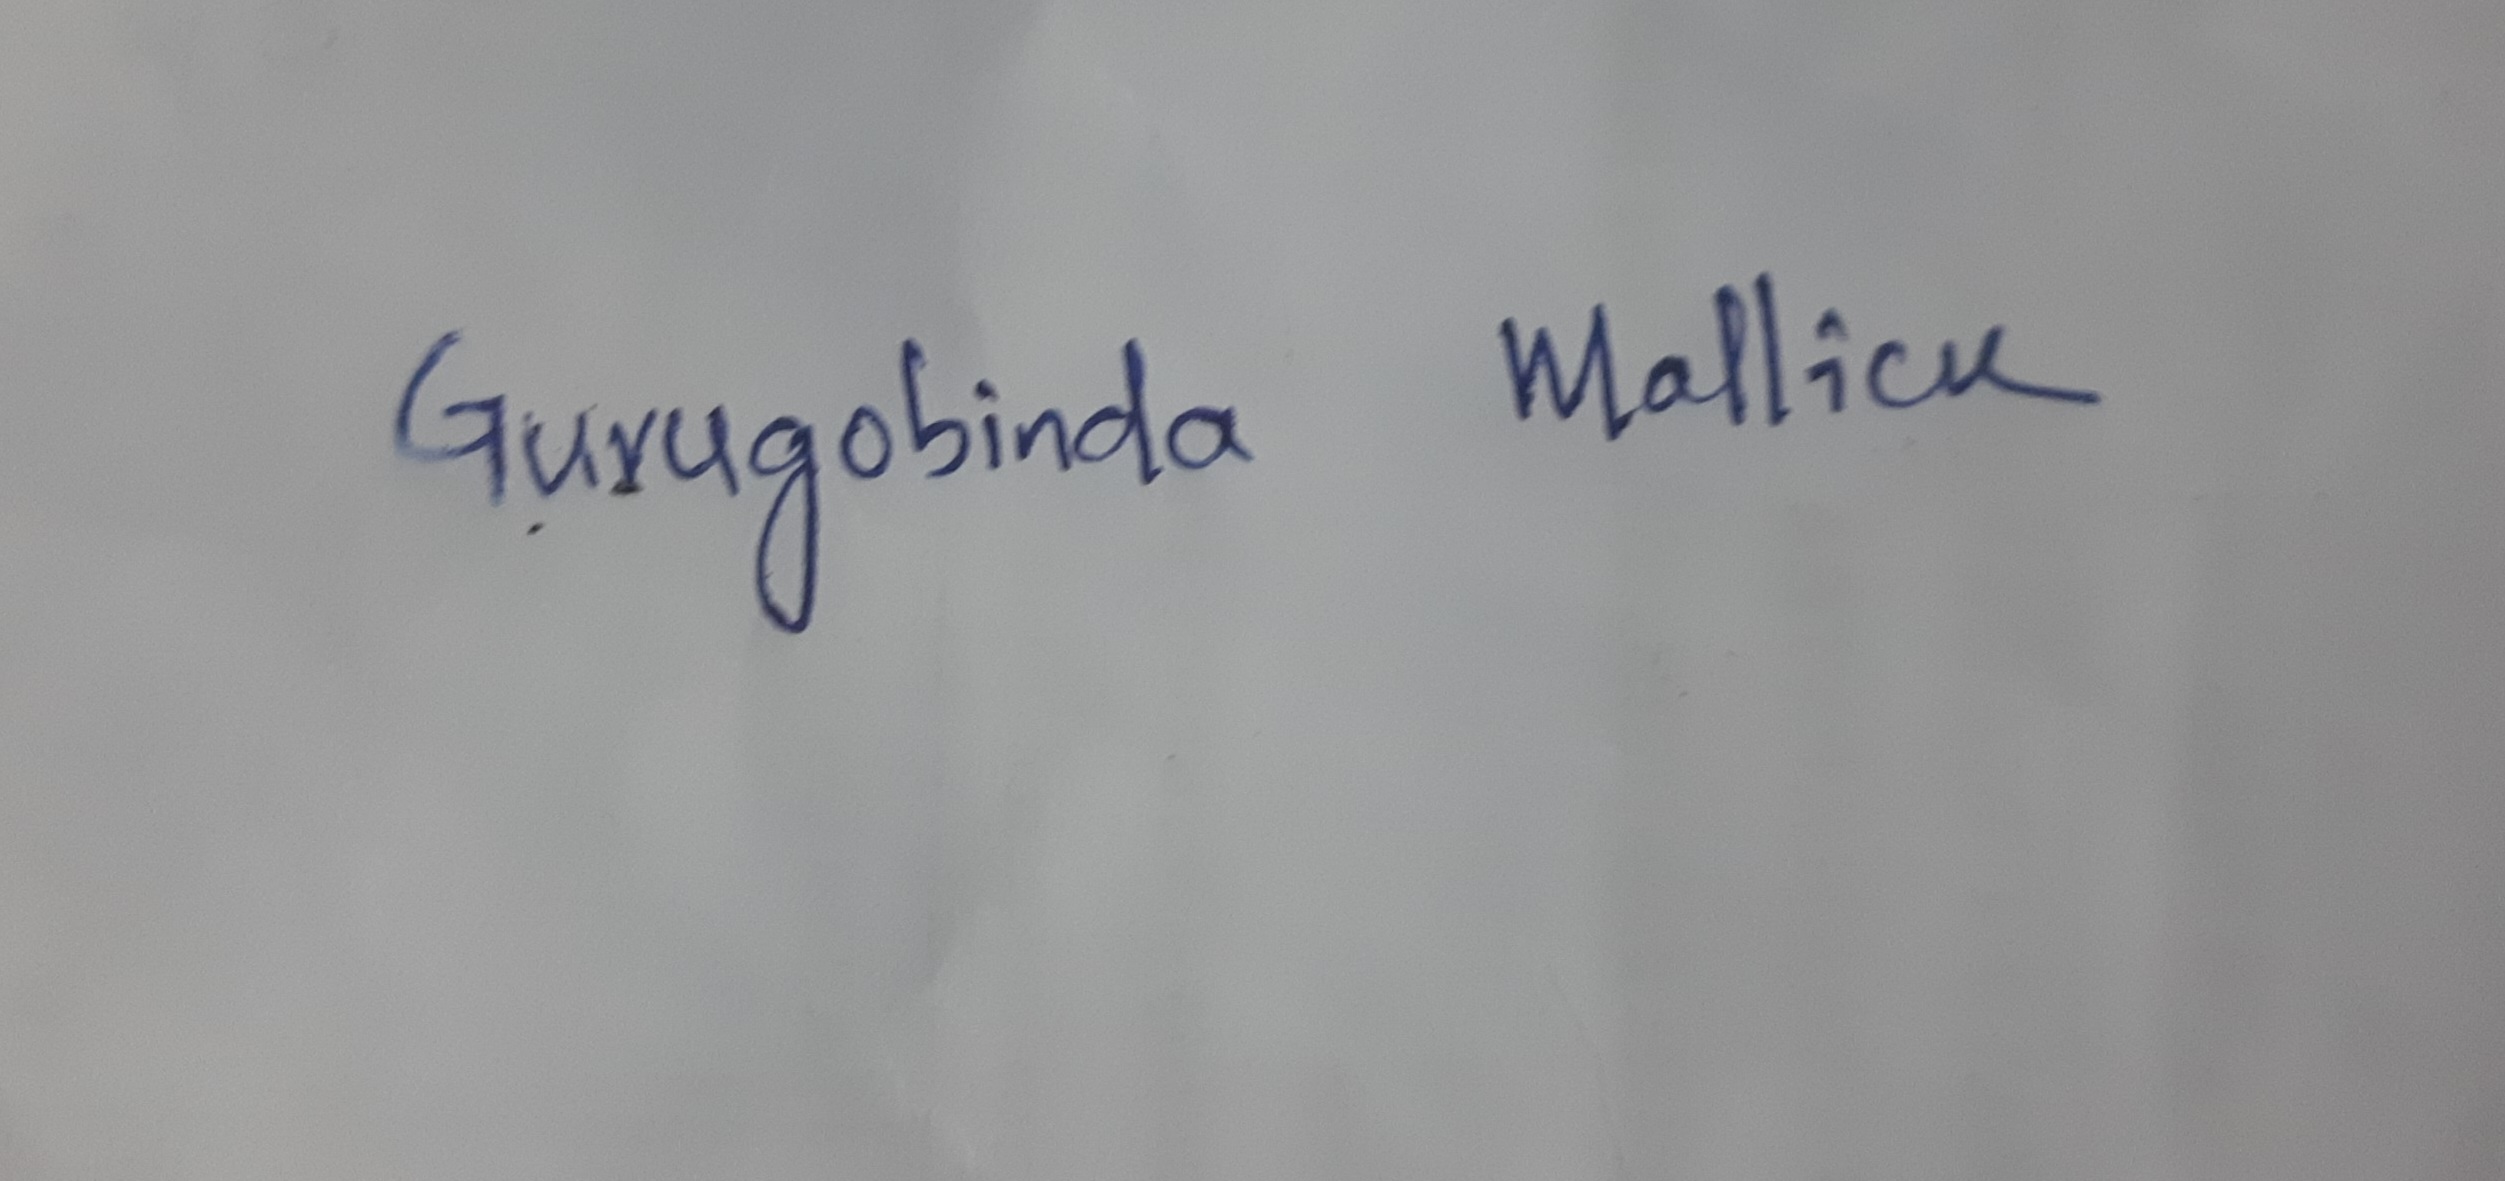 Gurugobinda Mallick